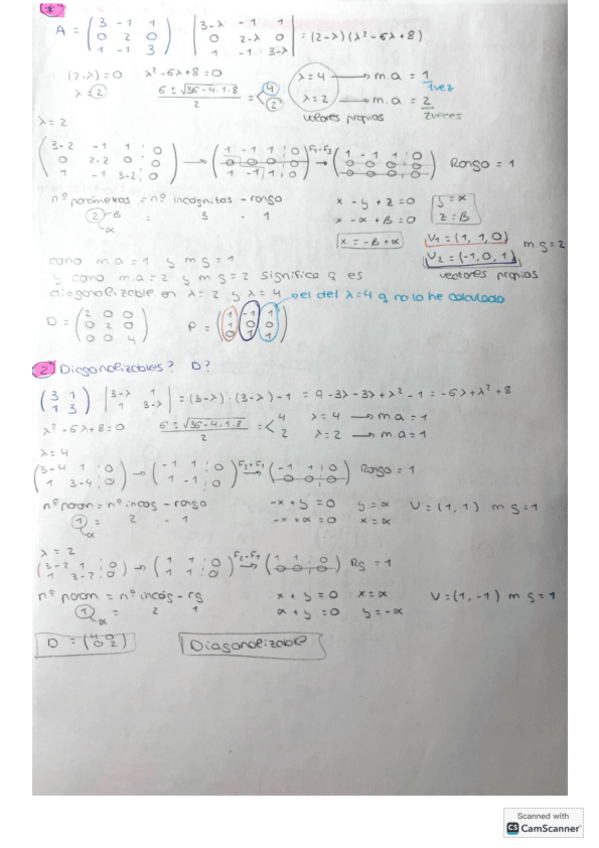 1
A = (3 -1 1 / 0 2 0 / 1 -1 3) |3-λ -1 1 / 0 2-λ 0 / 1 -1 3-λ| = (2-λ)(λ²-6λ+8)
(2-λ)=0 λ²-6λ+8=0 λ=4 → m.a = 1 1vez
λ=2 6±√36-4.1.8 / 2 =< 4 2 λ=2 → m.a = 2 2veces
valores propios
λ=2
(3-2 -1 1 : 0 / 0 2-2 0 : 0 / 1 -1 3-2 : 0) → (1 -1 1 : 0 / 0 0 0 : 0 / 1 -1 1 : 0) → (1 -1 1 : 0 / 0 0 0 : 0 / 0 0 0 : 0) Rango = 1
nº parámetros = nº incógnitas - rango x - y + z = 0 y = α
2 = 3 - 1 x - α + β = 0 z = β
α β
x = -β + α V1 = (1, 1, 0) m g = 2
V2 = (-1, 0, 1)
vectores propios
como m a = 1 y m g = 1
y como m.a = 2 y m g = 2 significa q es
diagonalizable en λ = 2 y λ = 4 el del λ=4 q no lo he calculado
D = (2 0 0 / 0 2 0 / 0 0 4) P = (1 -1 1 / 1 0 0 / 0 1 1)
2 Diagonalizables? D?
(3 1 / 1 3) |3-λ 1 / 1 3-λ| = (3-λ)·(3-λ)-1 = 9-3λ-3λ+λ²-1 = -6λ+λ²+8
λ²-6λ+8=0 6±√36-4.1.8 / 2 =< 4 2 λ=4 → m a = 1
λ=2 → m a = 1
λ=4
(3-4 1 : 0 / 1 3-4 : 0) → (-1 1 : 0 / 1 -1 : 0) F2+F1 → (-1 1 : 0 / 0 0 : 0) Rango = 1
nº param = nº incog - rango -x + y = 0 y = α V = (1, 1) m g = 1
1 = 2 - 1 -x + α = 0 x = α
α
λ = 2
(3-2 1 : 0 / 1 3-2 : 0) → (1 1 : 0 / 1 1 : 0) F2-F1 → (1 1 : 0 / 0 0 : 0) Rg = 1
nº param = nº incóg - rg x + y = 0 x = α V = (1, -1) m g = 1
1 = 2 1 α + y = 0 y = -α
α
D = (4 0 / 0 2) Diagonalizable
Scanned with
CS CamScanner